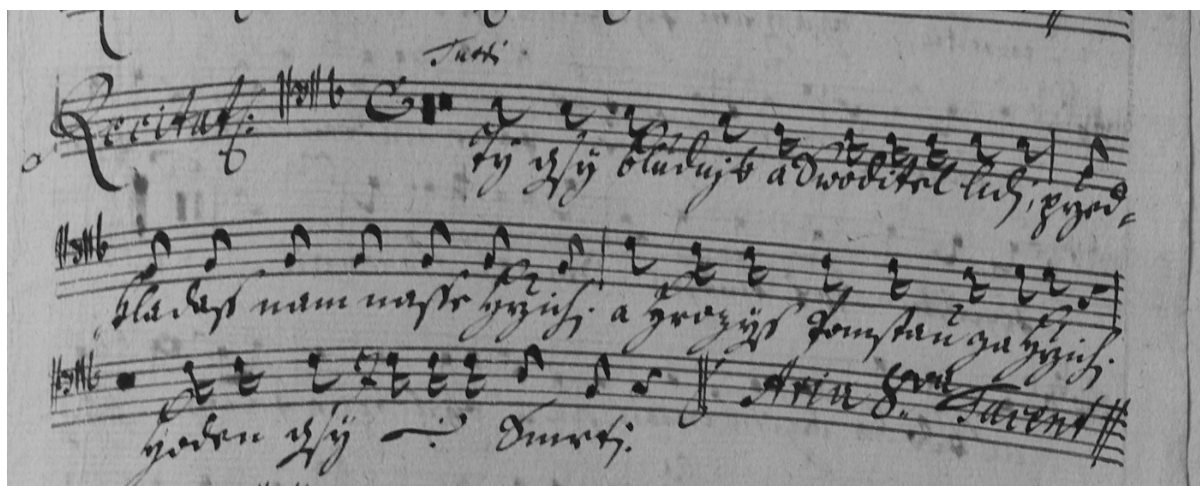 Tutti
Recitat:
ty gsy bludnjk a Swoditel lidj, przed=
kladass nam nasse hrzichj a hrozyss pomstau za hrzichj
hoden gsy Smrtj.
Aria Tacent